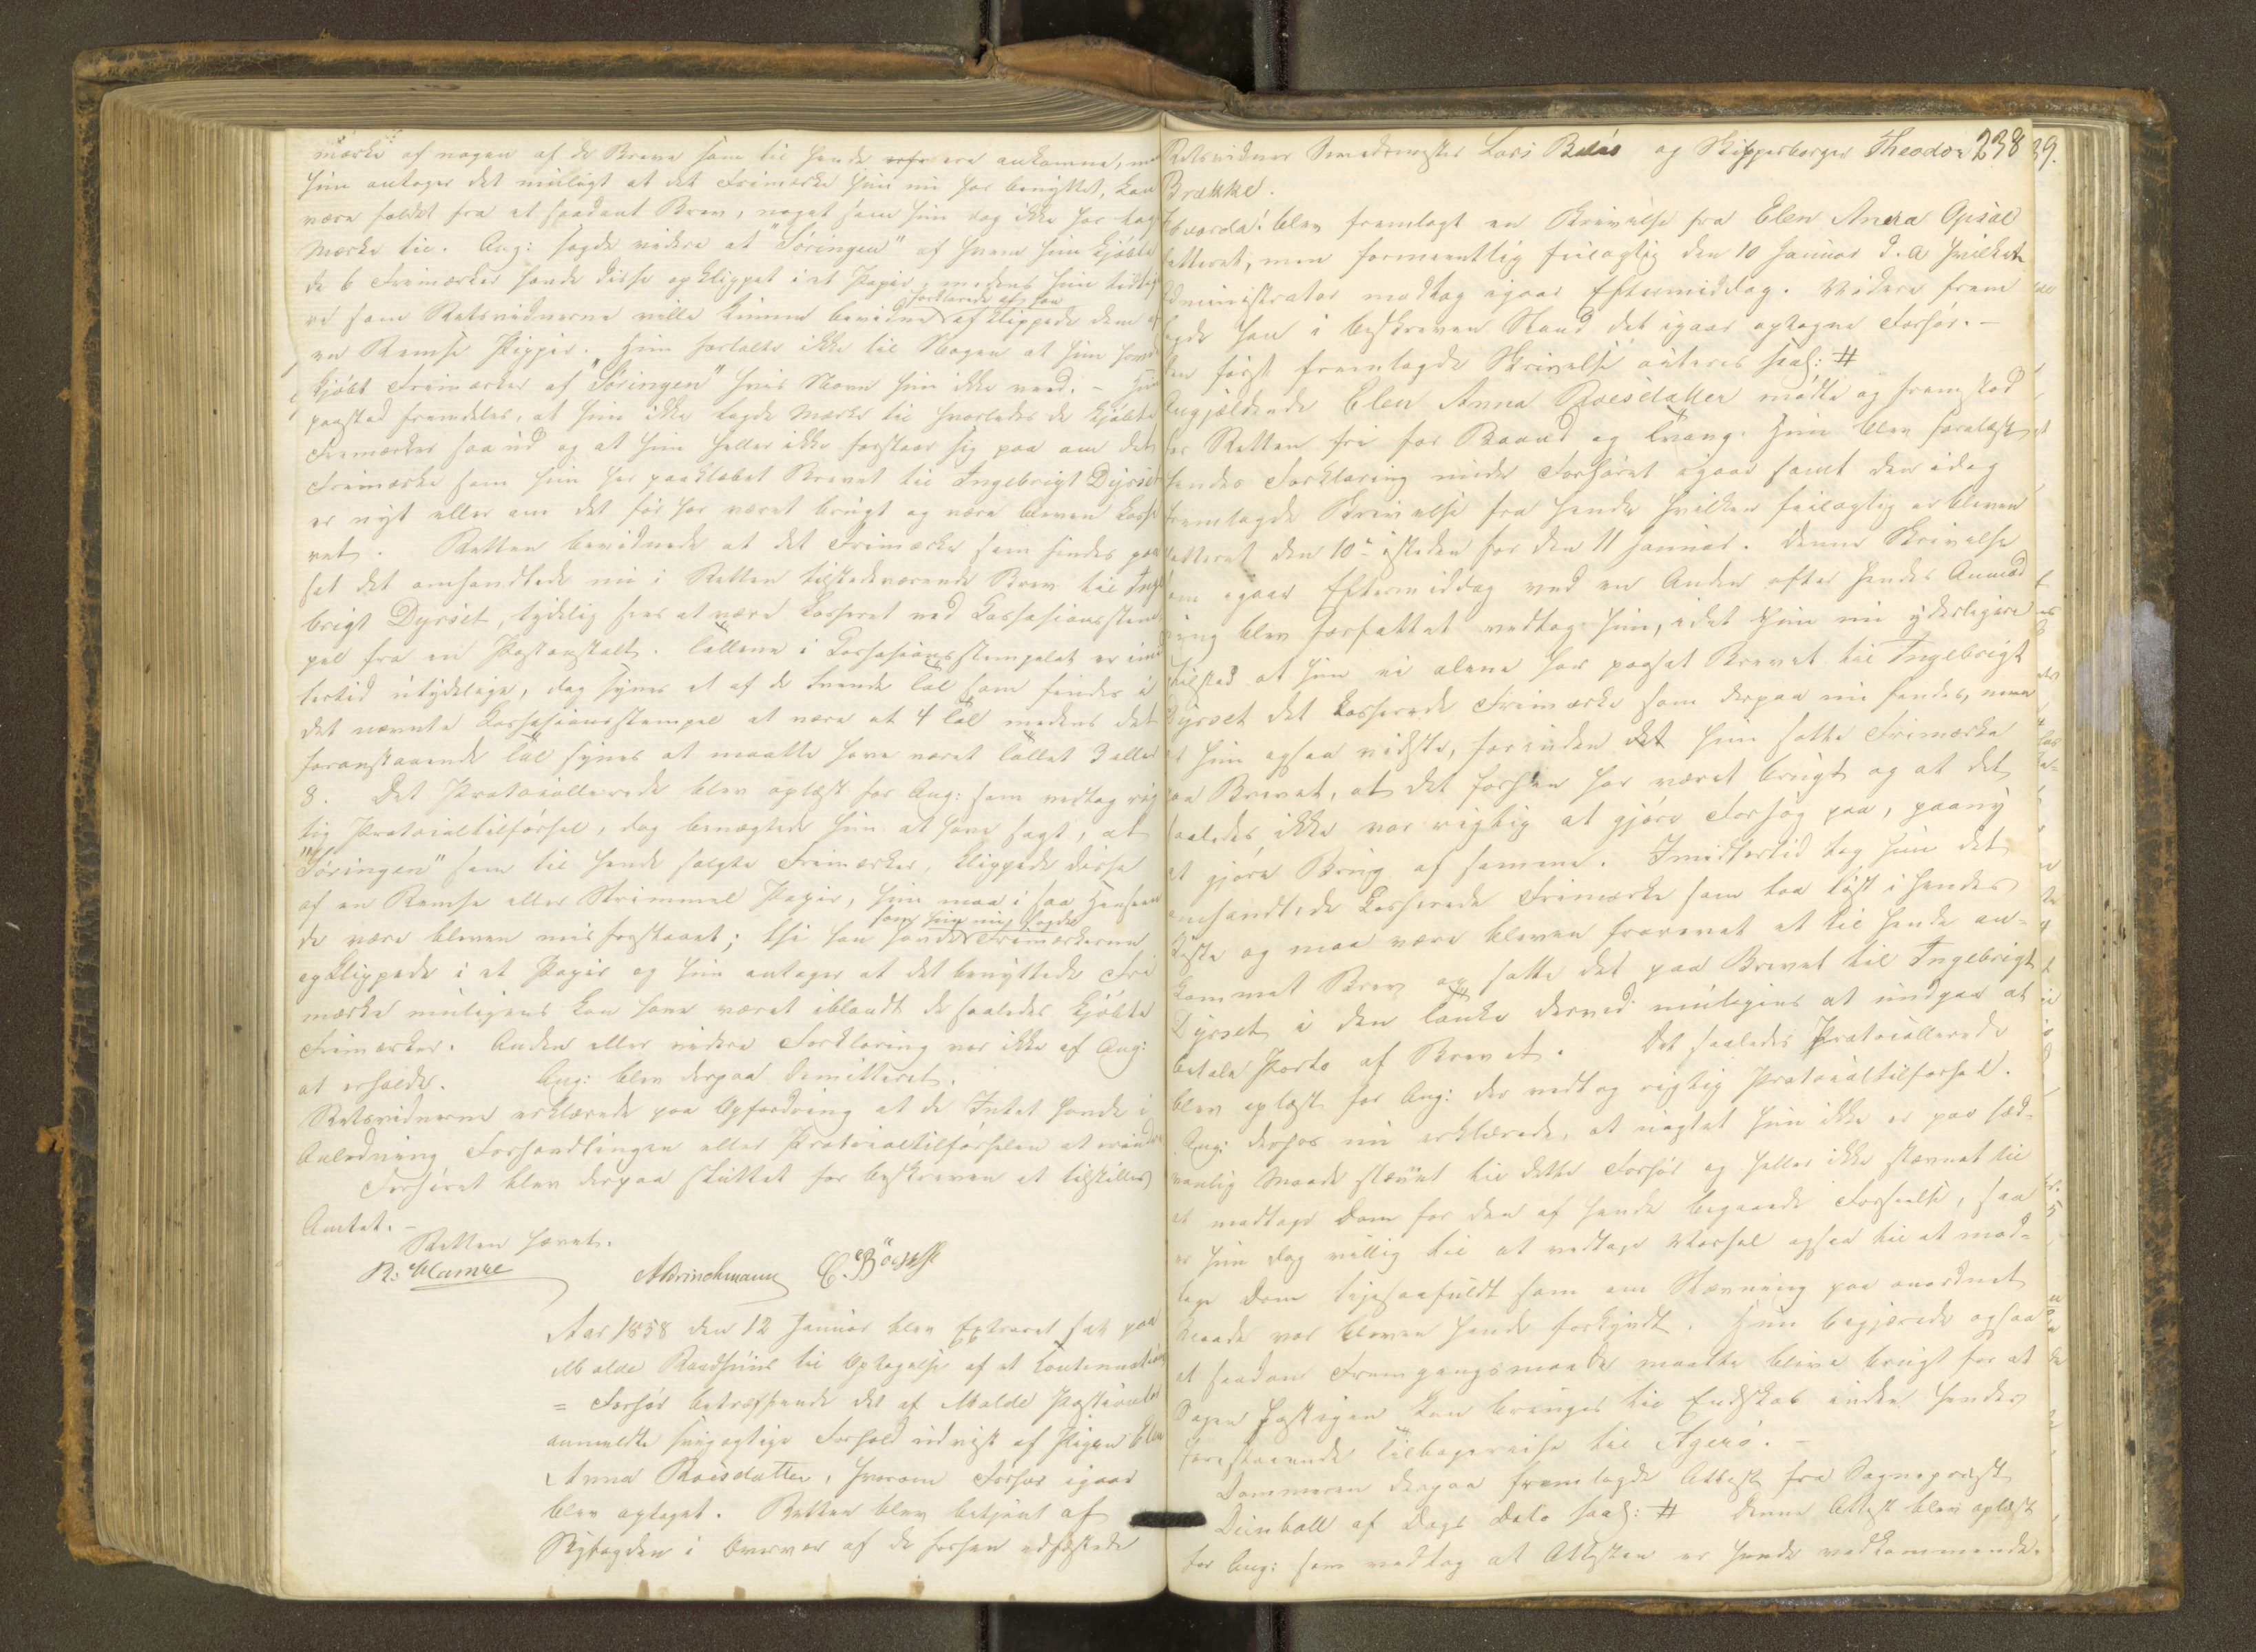 mærke af nogen af de Breve som til hende ere ankomne, men
hun antager det muligt at det Frimærke hun nu har benyttet, kan
være faldet fra et saadant Brev, noget som hun dog ikke har lagt
Mærke til. Ang: sagde videre at "Søringen" af hvem hun kjøbte
de 6 Frimærker havde disse opklippet i et Papir, medens hun tidlige
re som Retsvidnerne ville kunne bevidne forklarede at han afklippede dem af
en Remse Papir. Hun fortalte ikke til Nogen at hun havde
kjøbt Frimærker af "Søringen" hvis Navn hun ikke veed. - Hun
paastod fremdeles, at hun ikke lagde Mærke til hvorledes de kjøbte
Frimærker saa ud og at hun heller ikke forstaar sig paa om det
Frimærke som hun har paaklæbet Brevet til Ingebrigt Dyrset
er nyt eller om det før har været brugt og være bleven kasse
ret. Retten bevidnede at det Frimærke som findes paa
sat det omhandlede nu i Retten tilstedeværende Brev til Inge
brigt Dyrset, tydelig sees at være kasseret ved Kassasionsstem
pel fra en Postanstalt. Tallene i Kassasionsstempelet er imid
lertid utydelige, dog synes et af de tvende Tal som findes i
det nævnte Kassasionsstempel at være et 4 Tal medens det
foranstaaende Tal synes at maatte have været Tallet 3 eller
8. Det Protocollerede blev oplæst for Ang: som vedtog rig
tig Protocoltilførsel, dog benægtede hun at have sagt, at
"Søringen" som til hende solgte Frimærker, klippede disse
af en Remse eller Strimmel Papir, hun maa i saa Henseen
de være bleven misforstaaet; thi han havde som hun nu sagde Frimærkerne
opklippede i et Papir og hun antager at det benyttede Fri
mærke muligens kan have været iblandt de saaledes kjøbte
Frimærker. Anden eller videre Forklaring var ikke af Ang:
at erholde. Ang: blev derpaa dimitteret.
Retsvidnerne erklærede paa Opfordring at de Intet havde i
Anledning Forhandlingen eller Protocoltilførselen at erindre
Forhøret blev derpaa sluttet for beskreven at tilstilles
Amtet. -
Retten hævet.
Brinchmann
Aar 1858 den 12 Januar blev Extraret sat paa
Molde Raadhuus til Optagelse af et Continuations
= Forhør betræffende det af Molde Postcontor
anmeldte svigagtige Forhold udvist af Pigen Elen
Anna Roesdatter, hvorom Forhør igaar
blev optaget. Retten blev betjent af
Byfogden i Overvær af de forhen edfæstede
Retsvidner Smedemester Lars and Skipperborger Theodor 238 39.
Brække.
Hvorda! blev fremlagt en Skrivelse fra Elen Anna Opsal
datteret, men formeentlig feilagtig den 10 Januar d. A hvilket
Administrator modtog igaar Eftermiddag. Videre frem
lagde han i beskreven Stand det igaar optagne Forhør. -
Den først fremlagde Skrivelse acteres saal: #
Angjældende Elen Anna Roesdatter mødte og fremstod
for Retten fri for Baand og Tvang. Hun blev forelæst
hendes Forklaring under Forhøret igaar samt den idag
fremlagde Skrivelse fra hende hvilken feilagtig er bleven
datteret den 10de istedenfor den 11 Januar. Denne Skrivelse
som igaar Eftermiddag ved en Anden efter hendes Anmod
ning blev forfattet vedtog hun, idet hun nu yderligere
tilstod at hun ei alene har paasat Brevet til Ingebrigt
Dyrset det kasserede Frimærke som derpaa nu findes, men
at hun ogsaa vidste, forinden det hun satte Frimærke
paa Brevet, at det forhen har været brugt og at det
saaledes, ikke var rigtig at gjøre Forsøg paa, paany
at gjøre Brug af samme. Imidlertid tog hun det
omhandlede kasserede Frimærke som laa løst i hendes
Kiste og maa være bleven frarevet et til hende an-
kommet Brev og satte det paa Brevet til Ingebrigt
Dyrset i den Tanke derved muligens at undgaa at
betale Porto af Brevet. Det saaledes Protocollerede
blev oplæst for Ang: der vedtog rigtig Protocoltilførsel.
Ang: derhos nu erklærede, at uagtet hun ikke er paa sæd-
vanlig Maade stævnt til dette Forhør og heller ikke stævnet til
at modtage Dom for den af hende begaaede Forseelse, saa
er hun dog villig til at vedtage Varsel ogsaa til at mod-
tage Dom ligesaafuldt som om Stævning paa anordnet
Maade var bleven hende forkyndt. Hun begjærede ogsaa
at saadan Fremgangsmaade maatte blive brugt for at
Sagen hastigen kan bringes til Endskab inden hendes
forestaaende Tilbagereise til Agerø. -
Dommeren derpaa fremlagde Attest fra Sognepræst
Deinboll af Dags Dato saal: # Denne Attest blev oplæst
for Ang: som vedtog at Attesten er hende vedkommende.